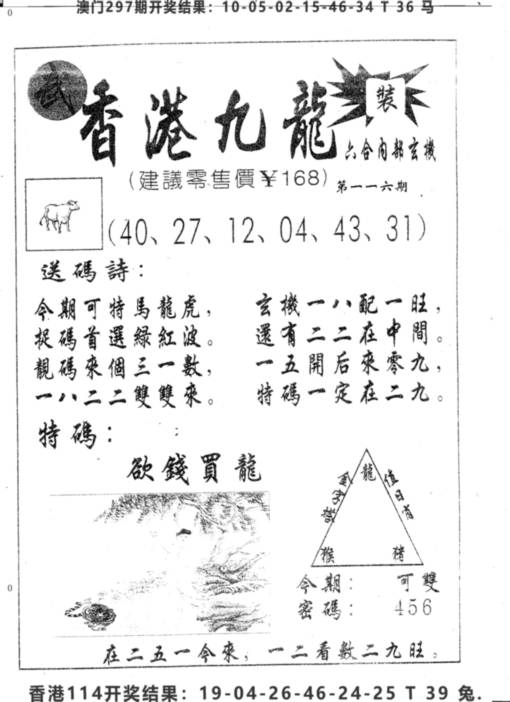 澳门297期开奖结果：10-05-02-15-46-34 T 36 马
武
香港九龍
裝
六合內部玄機
(建議零售價￥168)
第一一六期
(40、27、12、04、43、31)
送碼詩：
今期可特馬龍虎，
捉碼首選綠紅波。
靚碼來個三一數，
一八二二雙雙來。
玄機一八配一旺，
還有二二在中間。
一五開后來零九，
特碼一定在二九。
特碼：
欲錢買龍
龍
值日肖
猴
豬
今期：可雙
密碼：456
在二五一今來，一二看數二九旺。
香港114开奖结果：19-04-26-46-24-25 T 39 兔.